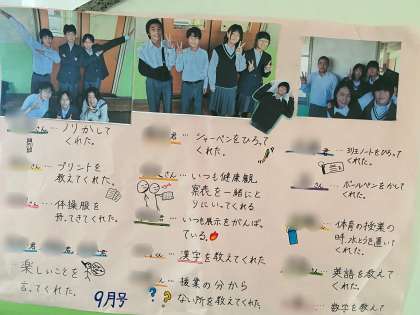 さん…ノリかして
くれた。
さん…プリントを
教えてくれた。
さん…体操服を
持ってきてくれた。
君 君 君
楽しいことを
言ってくれた。
9月号
君…シャーペンをひろって
くれた。
さん…いつも健康観
察表を一緒にと
りにいってくれる
…いつも展示をがんばっ
ている。
…漢字を教えてくれた
…授業の分から
ない所を教えてくれた。
君…班ノートをひろって
くれた。
…ボールペンをかして
くれた。
…体育の授業の
時、
くれた。
…英語を教えて
くれた。
…数学を教えて